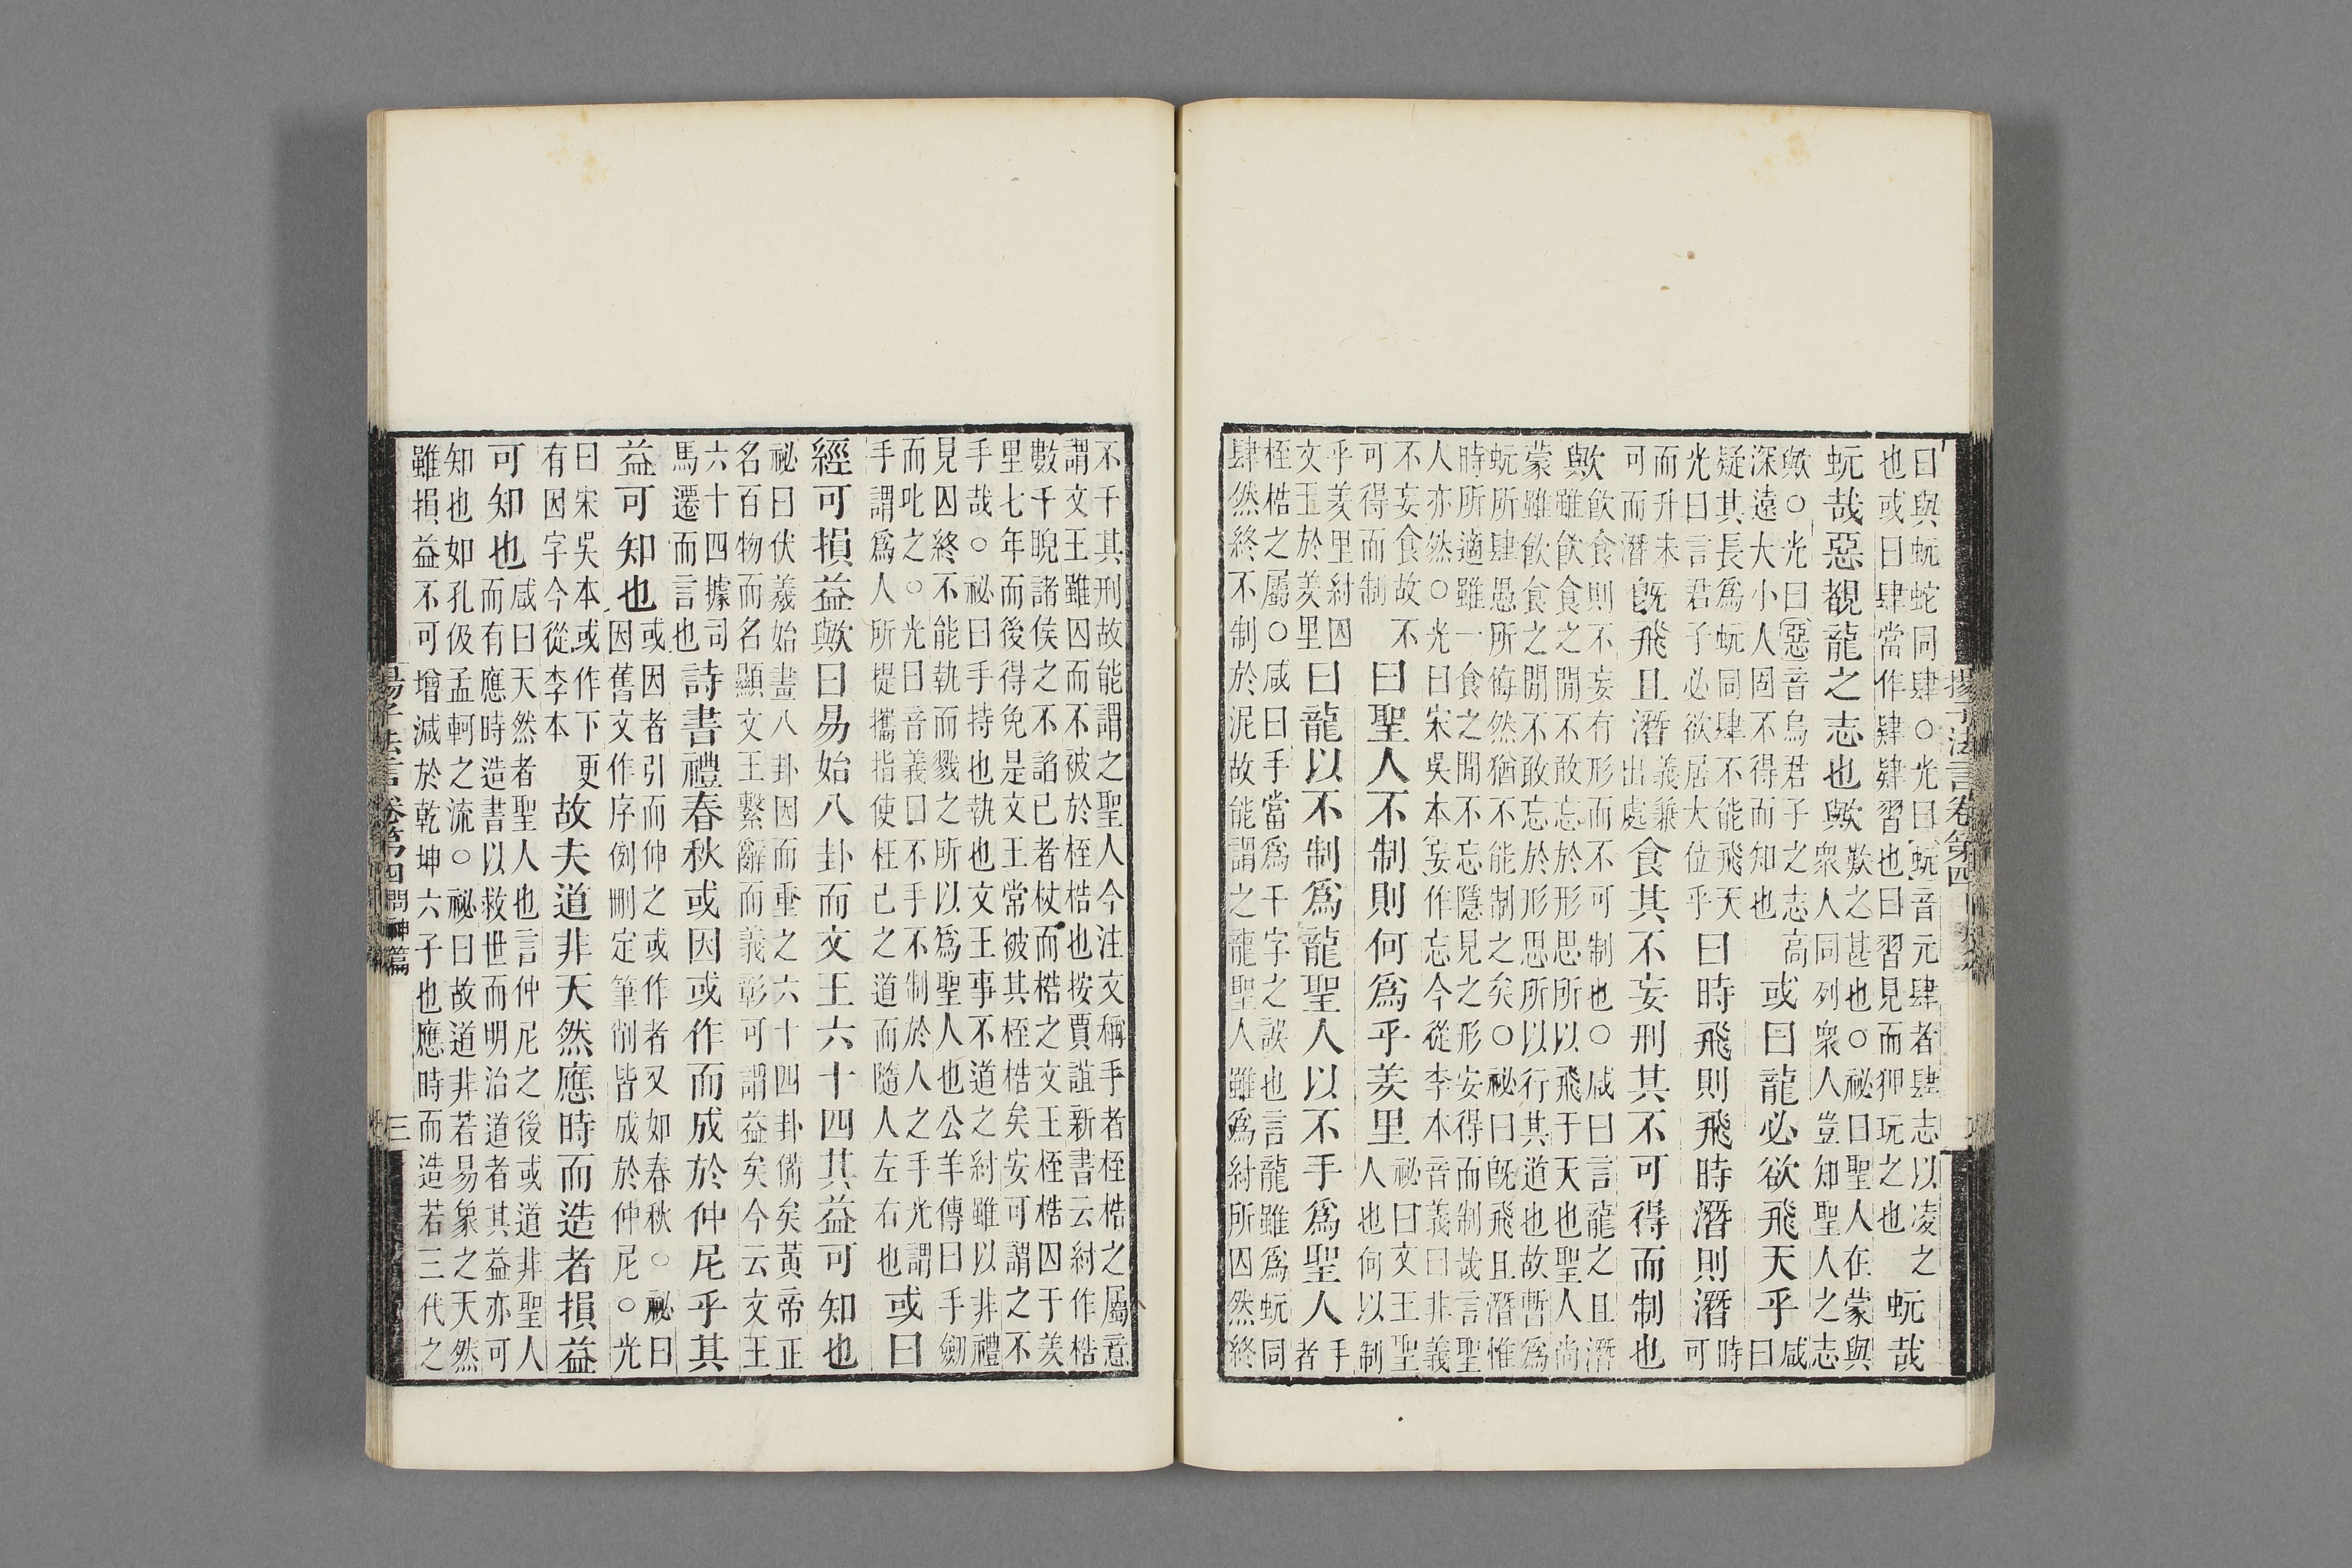 揚子法言卷第四
曰與蚖蛇同肆○光曰蚖音元肆者肆志以凌之
也或曰肆當作肄肄習也曰習見而狎玩之也
蚖哉
蚖哉惡覩龍之志也歟
歎之甚也○祕曰聖人在蒙與
衆人同列衆人豈知聖人之志
歟○光曰惡音烏君子之志高
深遠大小人固不得而知也
或曰龍必欲飛天乎
咸
曰
疑其長爲蚖同肆不能飛天
光曰言君子必欲居大位乎
曰時飛則飛時潛則潛
時
可
而升未
可而潛
旣飛且潛
義兼
出處
食其不妄刑其不可得而制也
歟
飮食則不妄有形而不可制也○咸曰言龍之且潛
雖飮食之閒不敢忘於形思所以飛于天也聖人尚
蒙雖飮食之閒不敢忘於形思所以行其道也故暫爲
蚖所肆愚所侮然猶不能制之矣○祕曰旣飛且潛惟
時所適雖一食之閒不忘隱見之形安得而制哉言聖
人亦然○光曰宋吳本妄作忘今從李本音義曰非義
不妄食故不
可得而制
曰聖人不制則何爲乎羑里
祕曰文王聖
人也何以制
乎羑里紂囚
文王於羑里
曰龍以不制爲龍聖人以不手爲聖人
手
者
桎梏之屬○咸曰手當爲千字之誤也言龍雖爲蚖同
肆然終不制於泥故能謂之龍聖人雖爲紂所囚然終
不千其刑故能謂之聖人今注文稱手者桎梏之屬意
謂文王雖囚而不被於桎梏也按賈誼新書云紂作梏
數千睨諸侯之不諂已者杖而梏之文王桎梏囚于羑
里七年而後得免是文王常被其桎梏矣安可謂之不
手哉○祕曰手持也執也文王事不道之紂雖以非禮
見囚終不能執而戮之所以爲聖人也公羊傳曰手劒
而叱之○光曰音義曰不手不制於人之手光謂
手謂爲人所提攜指使枉己之道而隨人左右也
或曰
經可損益歟曰易始八卦而文王六十四其益可知也
祕曰伏羲始畫八卦因而重之六十四卦備矣黃帝正
名百物而名顯文王繫辭而義彰可謂益矣今云文王
六十四據司
馬遷而言也
詩書禮春秋或因或作而成於仲尼乎其
益可知也
或因者引而伸之或作者又如春秋○祕曰
因舊文作序例刪定筆削皆成於仲尼○光
曰宋吳本或作下更
有因字今從李本
故夫道非天然應時而造者損益
可知也
咸曰天然者聖人也言仲尼之後或道非聖人
而有應時造書以救世而明治道者其益亦可
知也如孔伋孟軻之流○祕曰故道非若易象之天然
雖損益不可增減於乾坤六子也應時而造若三代之
揚子法言卷第四 問神篇 三